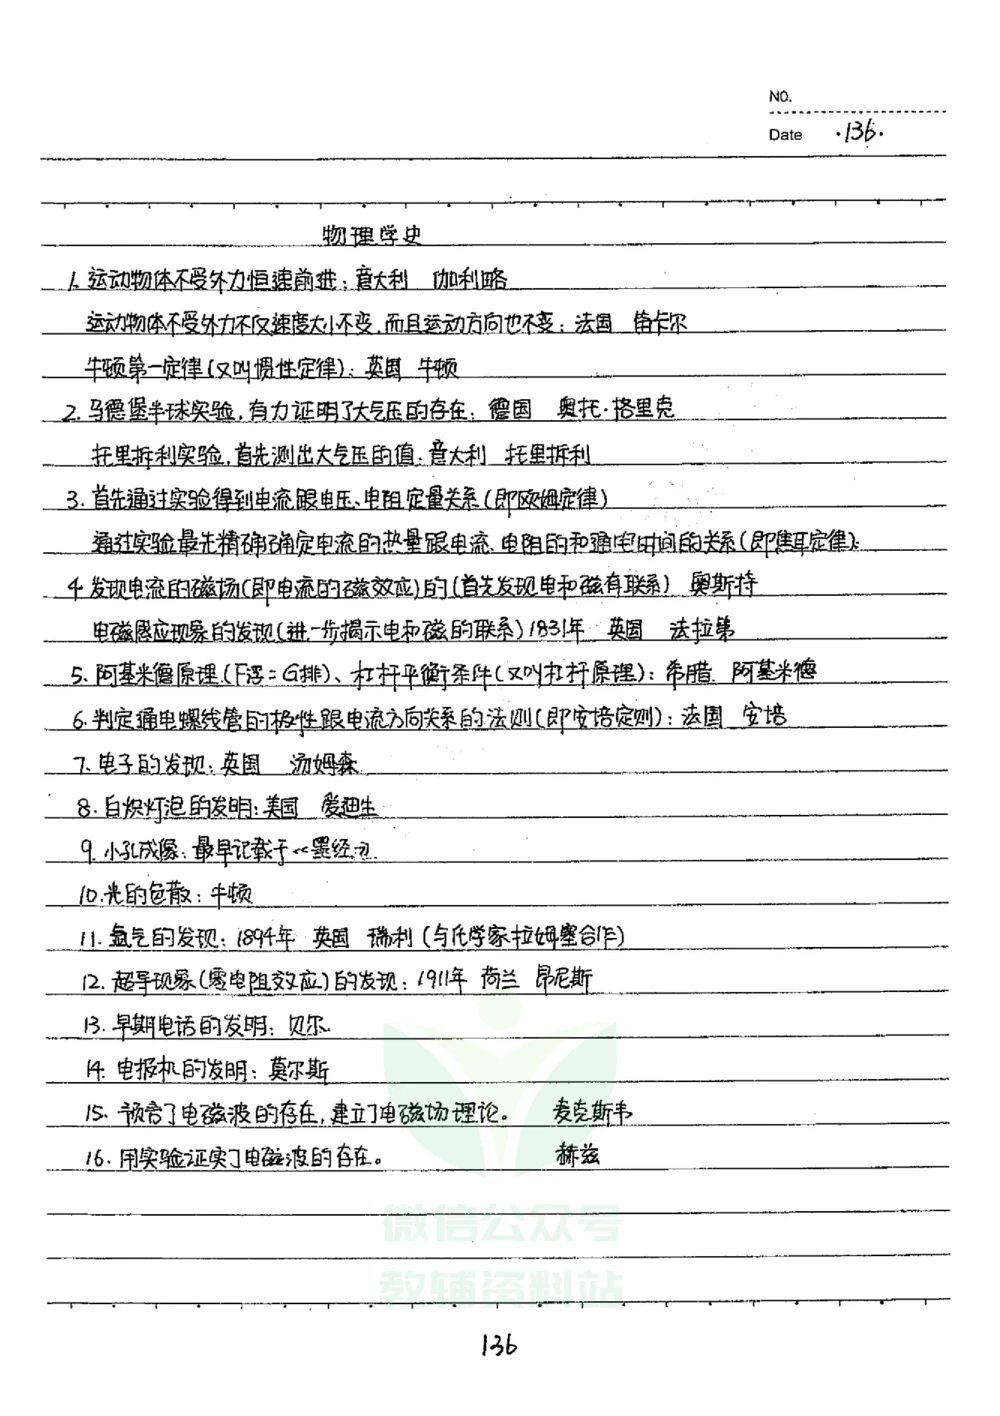 NO.
Date ·136·
物理学史
1. 运动物体不受外力恒速前进：意大利 伽利略
运动物体不受外力不仅速度大小不变，而且运动方向也不变：法国 笛卡尔
牛顿第一定律(又叫惯性定律)：英国 牛顿
2. 马德堡半球实验，有力证明了大气压的存在：德国 奥托·格里克
托里拆利实验，首先测出大气压的值：意大利 托里拆利
3. 首先通过实验得到电流跟电压、电阻定量关系(即欧姆定律)
通过实验最先精确确定电流的热量跟电流、电阻的和通电时间的关系(即焦耳定律)：
4. 发现电流的磁场(即电流的磁效应)的(首先发现电和磁有联系) 奥斯特
电磁感应现象的发现(进一步揭示电和磁的联系)1831年 英国 法拉第
5. 阿基米德原理(F浮=G排)、杠杆平衡条件(又叫杠杆原理)：希腊 阿基米德
6. 判定通电螺线管的极性跟电流方向关系的法则(即安培定则)：法国 安培
7. 电子的发现：英国 汤姆森
8. 白炽灯泡的发明：美国 爱迪生
9. 小孔成像：最早记载于《墨经》
10. 光的色散：牛顿
11. 氩气的发现：1894年 英国 瑞利(与化学家拉姆塞合作)
12. 超导现象(零电阻效应)的发现：1911年 荷兰 昂尼斯
13. 早期电话的发明：贝尔
14. 电报机的发明：莫尔斯
15. 预言了电磁波的存在，建立了电磁场理论。 麦克斯韦
16. 用实验证实了电磁波的存在。 赫兹
微信公众号
教辅资料站
136